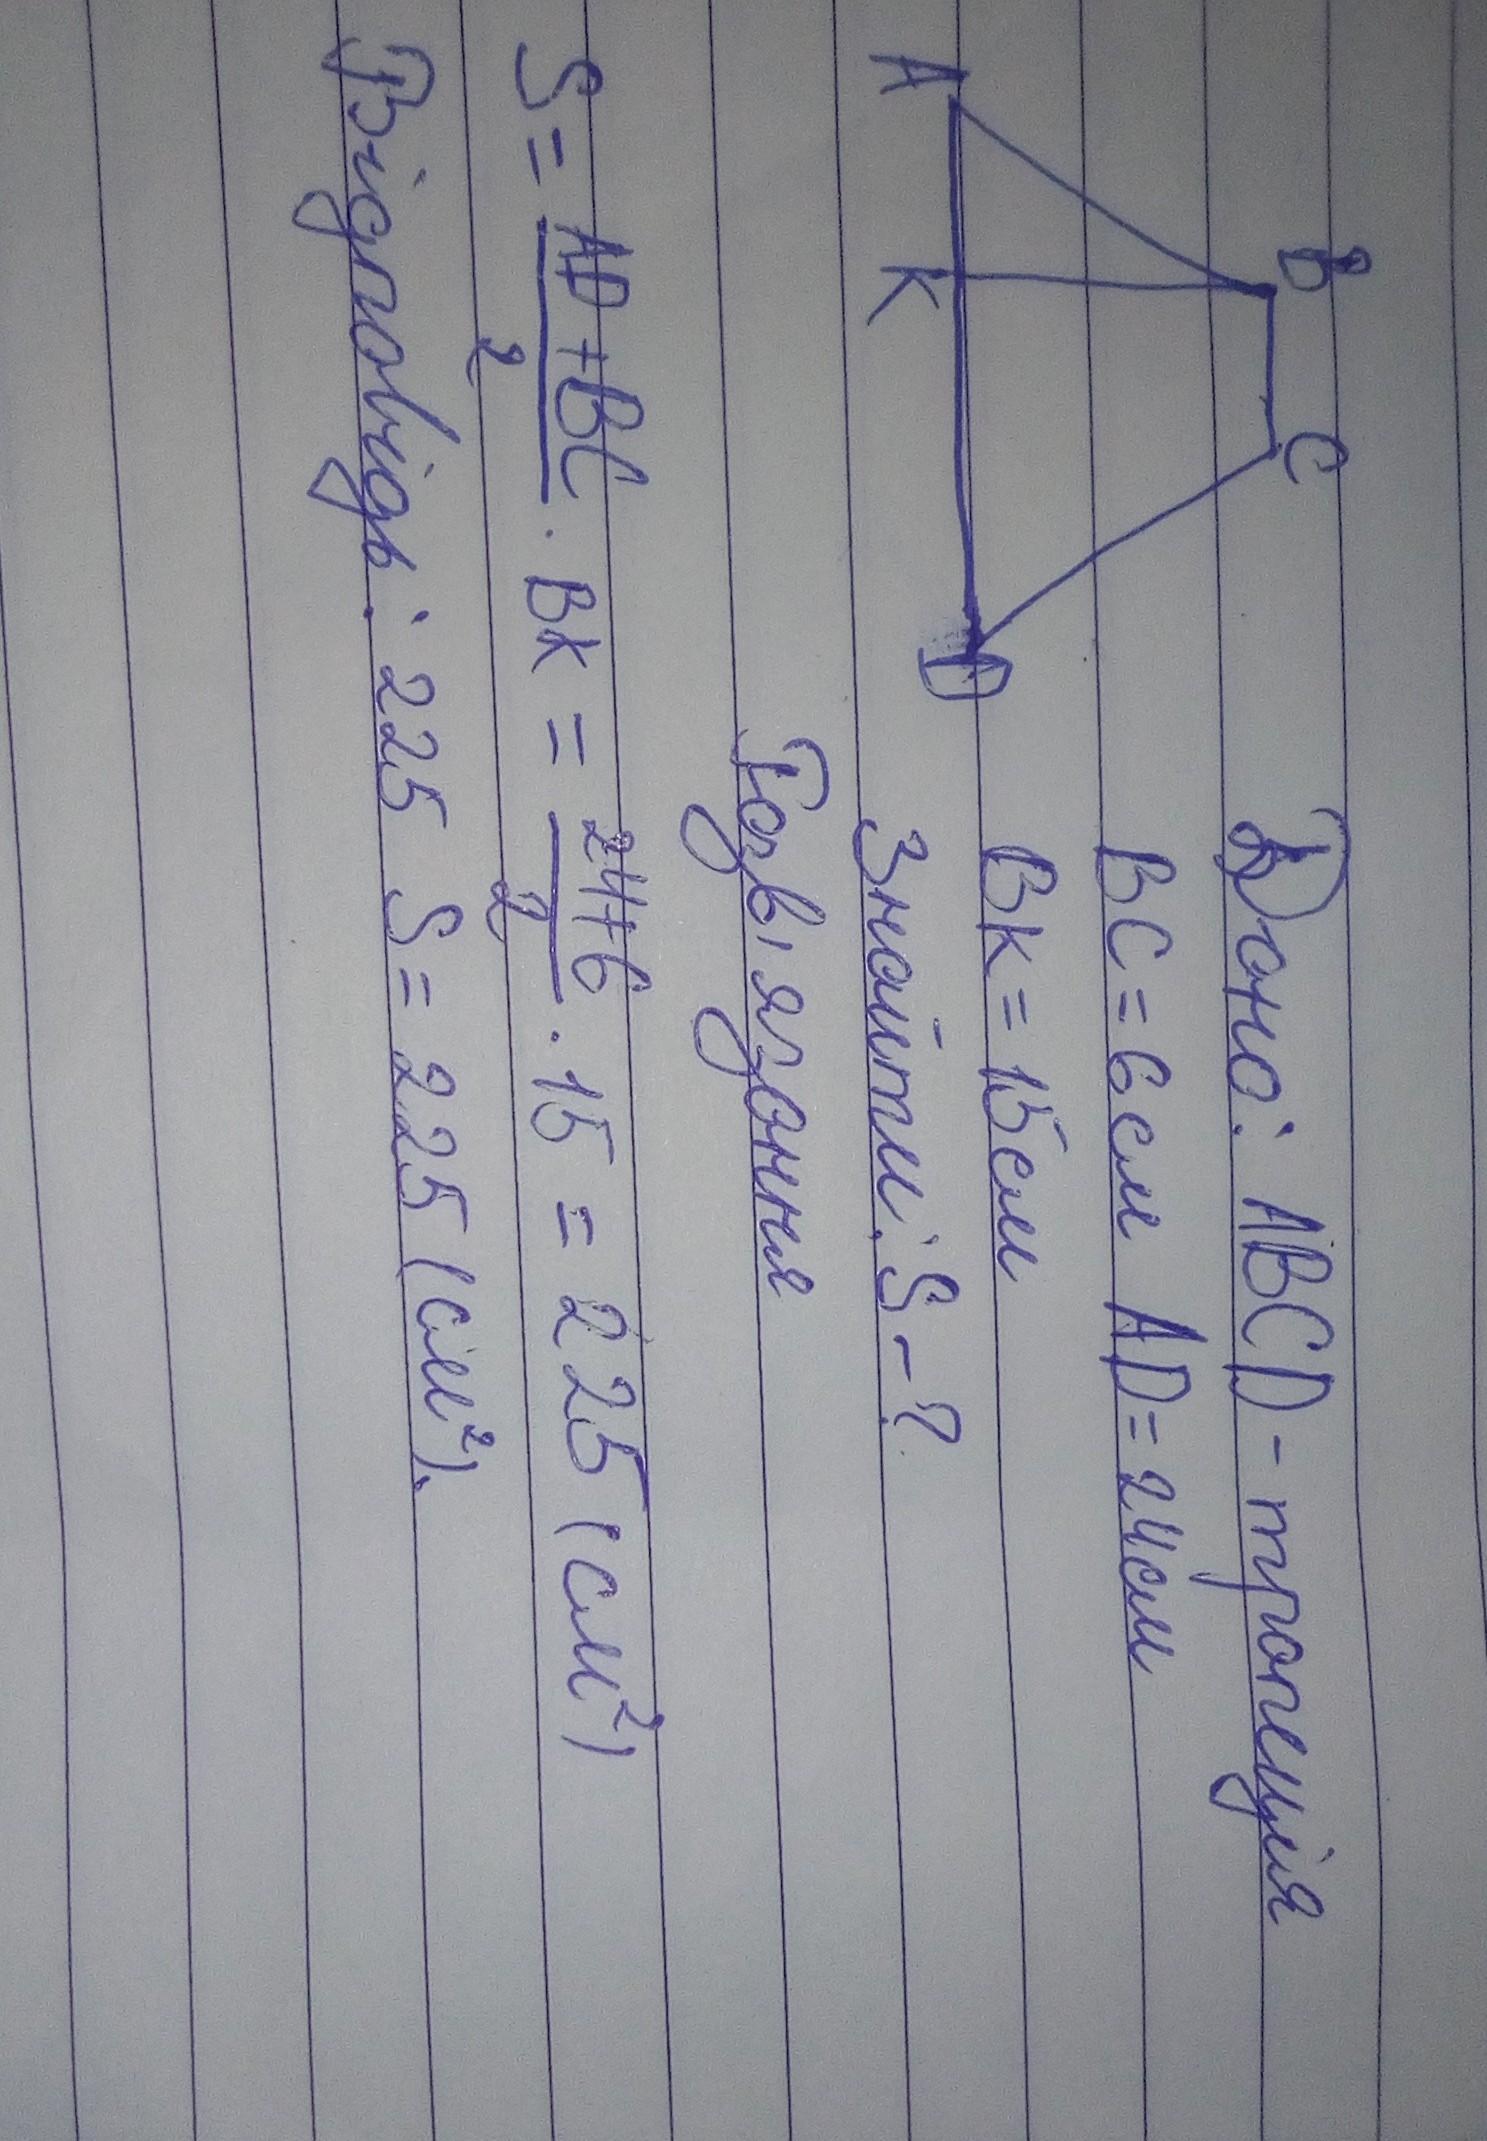 Дано: ABCD - трапеція
BC = 6см AD = 24см
BK = 15см
Знайти: S - ?
B
C
A
K
D
Розв'язання
S = AD+BC/2 · BK = 24+6/2 · 15 = 225 (см²)
Відповідь: 225 S = 225 (см²).